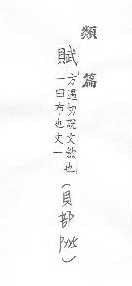 類篇
賦
方遇切說文斂也
一曰布也文一
(貝部